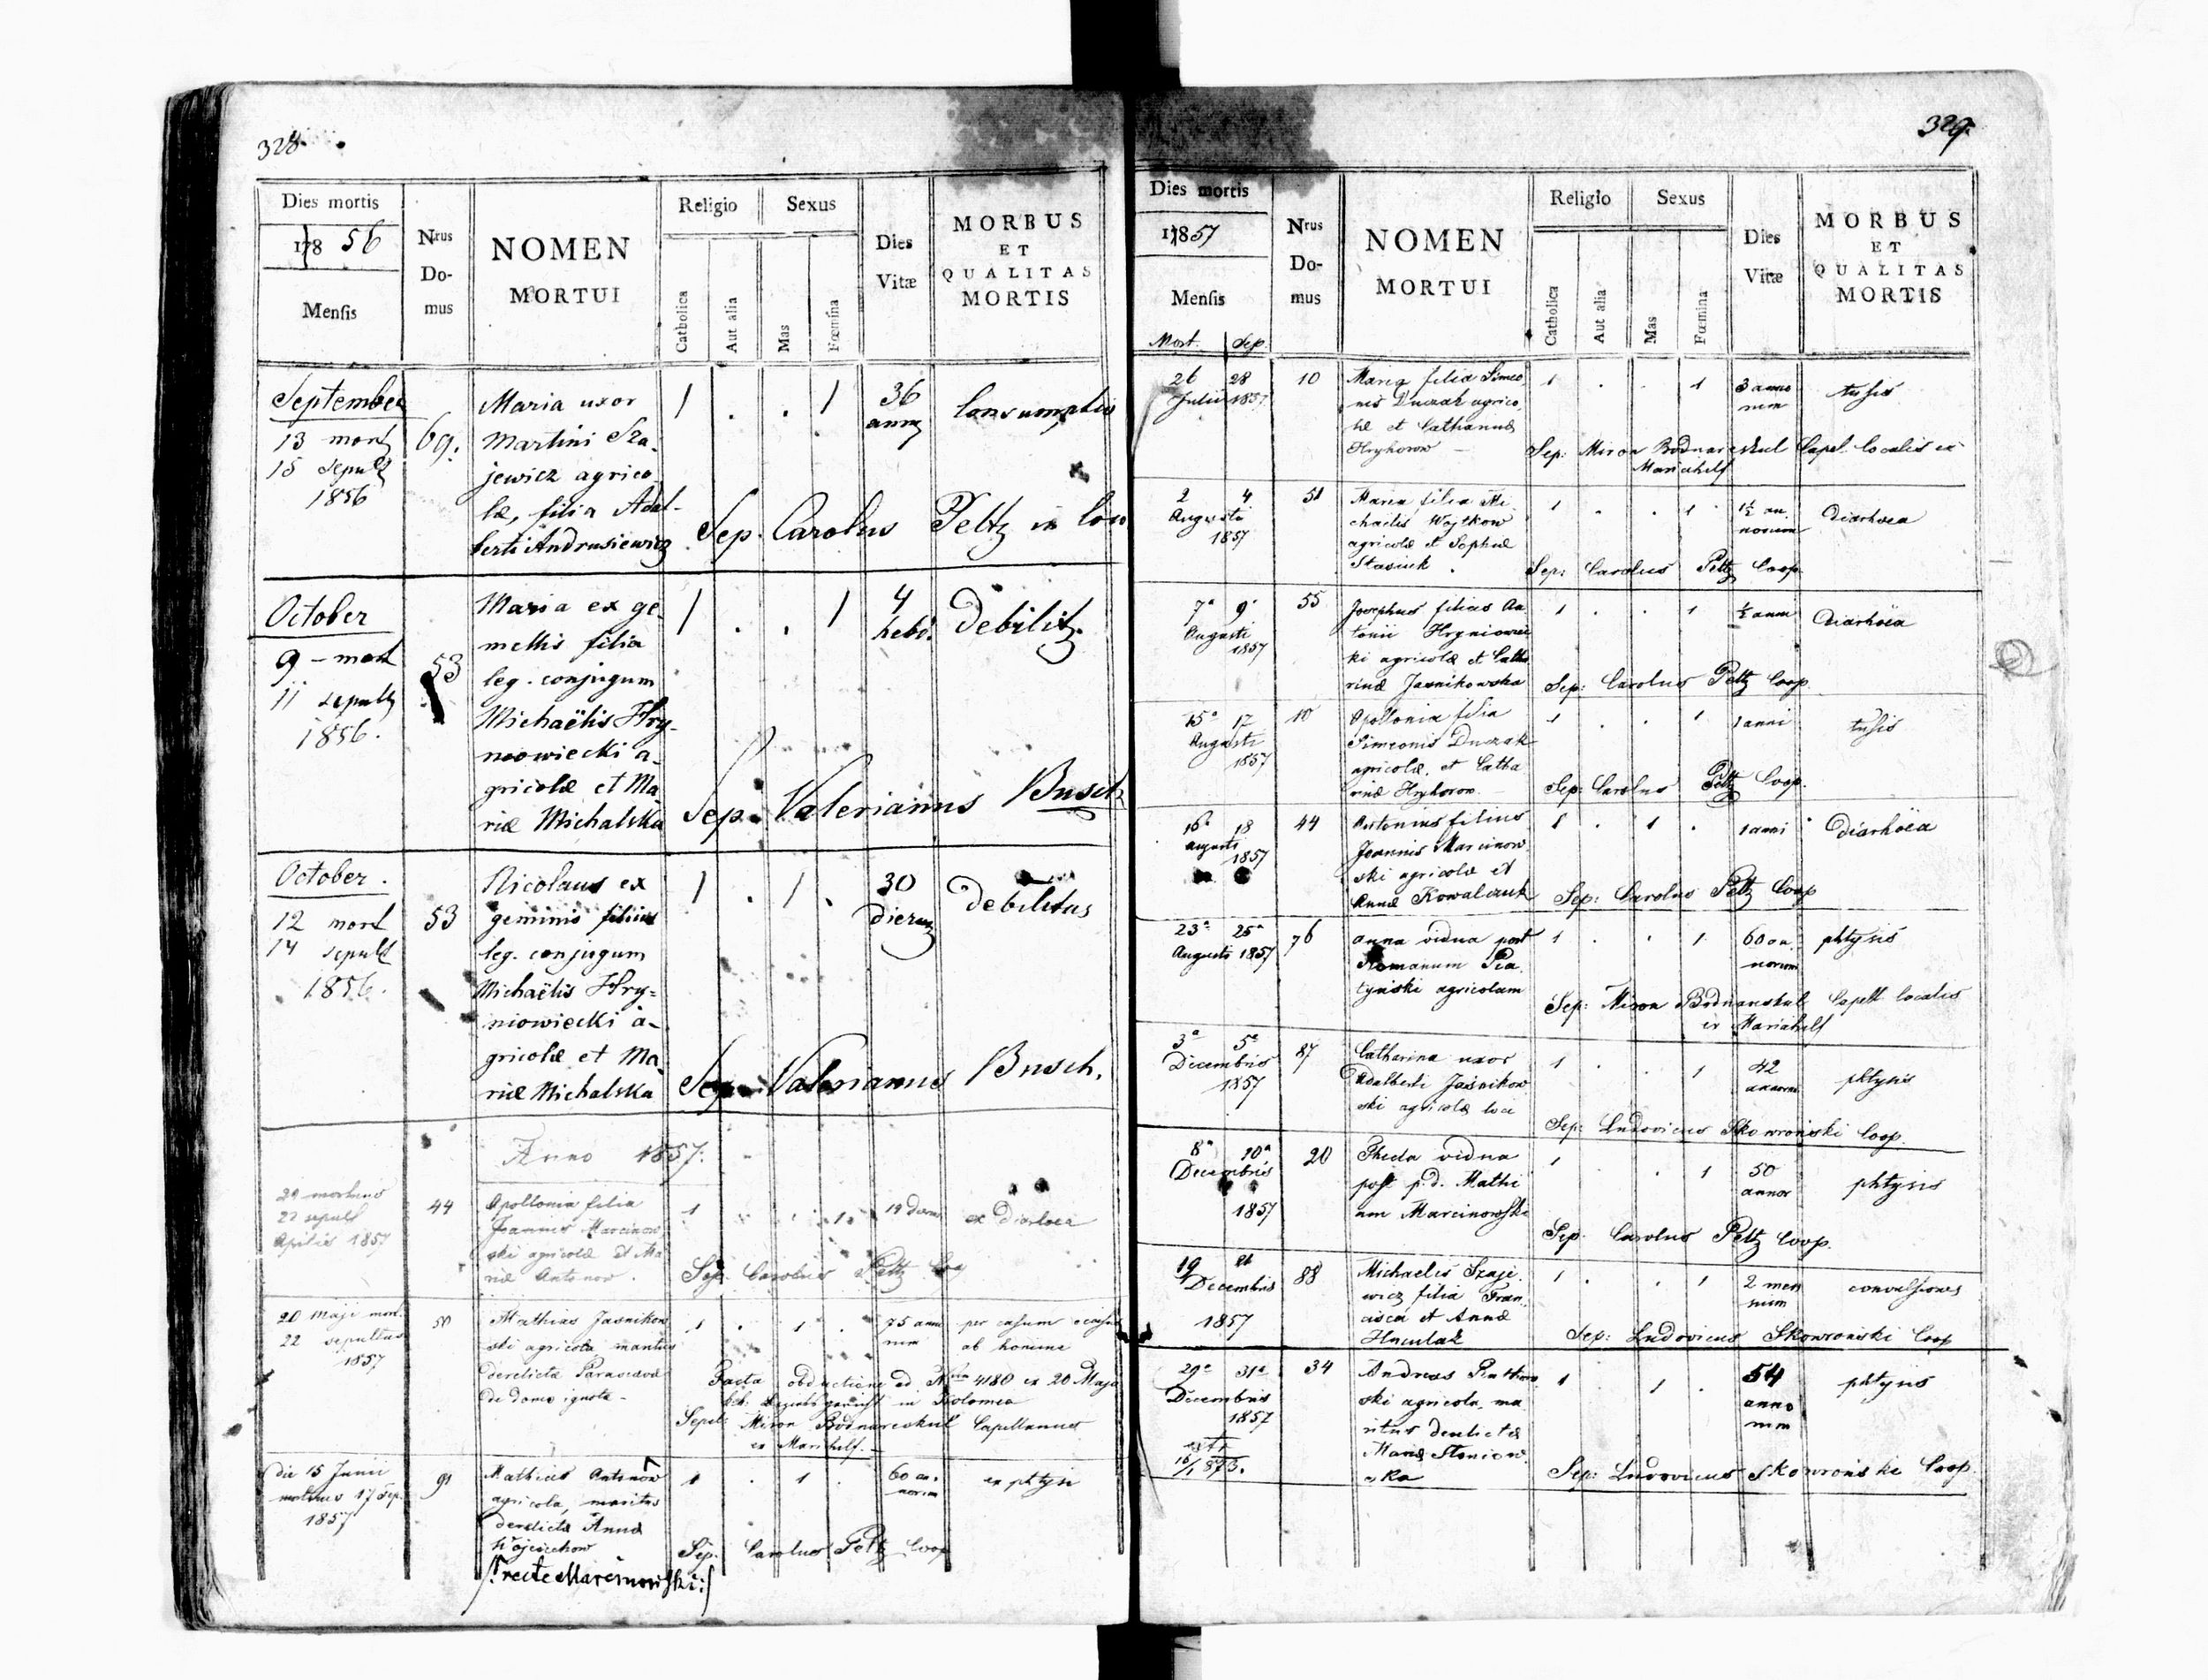 328.
Dies mortis
178 56
Mensis
Nrus
Do-
mus
NOMEN
MORTUI
Religio
Sexus
Catholica
Aut alia
Mas
Fœmina
Dies
Vitæ
MORBUS
ET
QUALITAS
MORTIS
September
13 mort
15 sepult
1856
69.
Maria uxor
Martini Sza-
jewicz agrico
læ, filia Adal-
berti Andrusiewicz
1 . . 1
36
annor
Consumptio
Sep. Carolus Peltz in
October
9 - mort
11 sepult
1856.
53
Maria ex ge
mellis filia
leg. conjugum
Michaëlis Hry-
niowiecki a-
gricolæ et Ma
riæ Michalska
1 . . 1
4
hebd.
Debilit.
Sep. Valerianus Busch
October.
12 mort
14 sepult
1856.
53
Nicolaus ex
geminis filius
leg. conjugum
Michaëlis Hry=
niowiecki a-
gricolæ et Ma
riæ Michalska
1 . 1 .
30
dierum
debilitas
Sep. Valerianus Busch.
Anno 1857.
mortuus
22 sepult
Aprilis 1857
44
Apollonia filia
Joannis Marcinow
ski agricolæ et Ma
riæ Antonow.
1 . . 1.
19 dierum
ex Diarhoea
Sep. Carolus Peltz Coop
20 Maji mort.
22 sepultus
1857
Mathias Jasnikow
ski agricola maritus
derelicta
de domo ignota -
1 . 1 .
75 anno
rum
per casum
ab homine
Facta obductione ad Nrum 4180 ex 20 Maji
Bezirksgericht in Kolomea
Sepel: Miron Bodnareskul Capellanus
ex Mariahilf. -
die 15 Junii
mortuus 17 Sep.
1857
91
Mathias Antonow
agricola, maritus
derelictæ Annæ
Wojciechow
/:recte Marcinowski:/
1 . 1 .
60 an.
norum
ex phtysi
Sep. Carolus Peltz Coop
329.
Dies mortis
17857
Mensis
Mort. Sep.
Nrus
Do-
mus
NOMEN
MORTUI
Religio
Sexus
Catholica
Aut alia
Mas
Fœmina
Dies
Vitæ
MORBUS
ET
QUALITAS
MORTIS
26 28
Julii 1857
10
Maria filia Simeo
nis Duczak agrico
læ et Catharinæ
Hryhorow -
1 . . 1
3 anno
rum
tusis
Sep: Miron Bodnareskul Capel. localis ex
Mariahilf
2 4
Augusti
1857
51
Maria filia Mi
chaelis Wojtkow
agricolæ et Sophiæ
Stasiuk .
1 . . 1
1½ an.
norum
Diarhoea
Sep: Carolus Peltz Coop.
7a 9a
Augusti
1857
55
Josephus filius An
tonii Hryniowiec
ki agricolæ et Catha
rinæ Jasnikowska
1 . . 1
½ anni
Diarhoëa
Sep: Carolus Peltz Coop.
15a 17
Augusti
1857
10
Apollonia filia
Simeonis Duczak
agricolæ, et Catha
rinæ Hryhorow. -
1 . . 1
1 anni
tusis
Sep: Carolus Peltz Coop.
16a 18
Augusti
1857
44
Antonius filius
Joannis Marcinow
ski agricolæ et
Annæ Kowalczuk
1 . 1 .
1 anni
Diarhoëa
Sep: Carolus Peltz Coop
23a 25a
Augusti 1857
76
Anna vidua post
Romanum Pia
tyński agricolam
1 . . 1
60 an
norum
phtysis
Sep: Miron Bodnareskul Capell localis
ex Mariahilf
3a 5a
Decembris
1857
87
Catharina uxor
Adalberti Jasnikow
ski agricolæ loci
1 . . 1
42
annorum
phtysis
Sep: Ludovicus Skowroński Coop.
8a 10a
Decembris
1857
20
Theda vidua
post p.d. Mathi
am Marcinowski
1 . . 1
50
annor
phtysis
Sep. Carolus Peltz Coop.
19 21
Decembris
1857
88
Michaelis Szaje
wicz filia Fran
cisca et Annæ
Huculak
1 . . 1
2 men
sium
convulsiones
Sep: Ludovicus Skowroński Coop
29a 31a
Decembris
1857
extr
16/1 873.
34
Andreas
ski agricola, ma
ritus derelictæ
Mariæ Stoniow
ska
1 . 1 .
54
anno
rum
phtysis
Sep: Ludovicus Skowroński Coop.